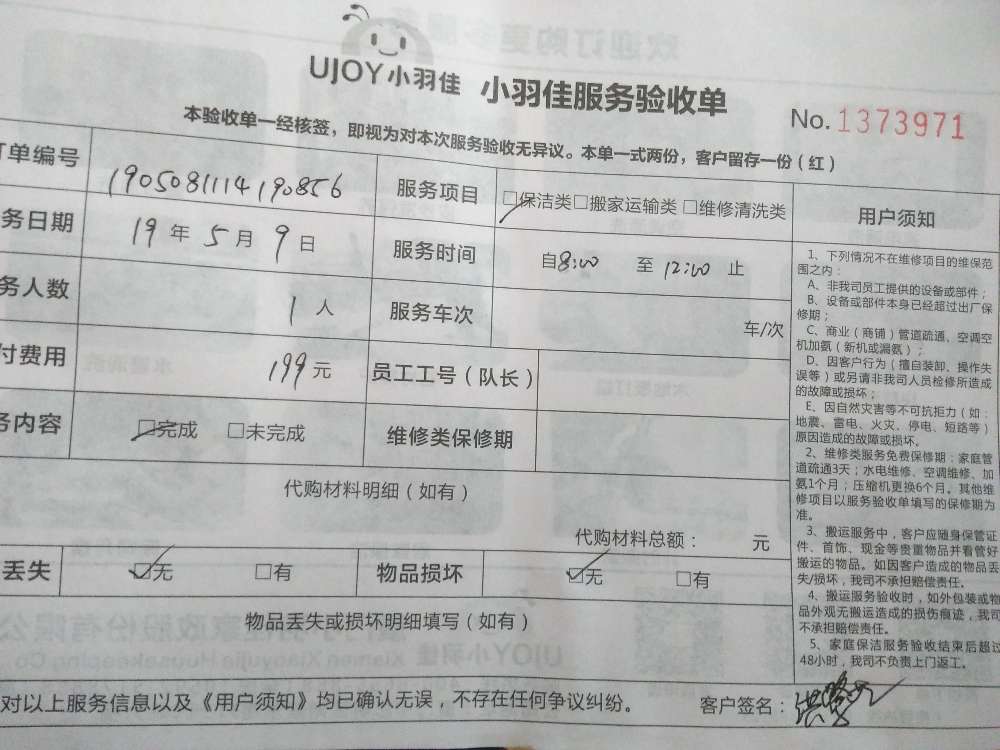 UJOY小羽佳 小羽佳服务验收单
No.1373971
本验收单一经核签，即视为对本次服务验收无异议。本单一式两份，客户留存一份（红）
订单编号 1905081114190856 服务项目 □保洁类□搬家运输类 □维修清洗类 用户须知
务日期 19 年 5 月 9 日 服务时间 自8:00 至 12:00 止
务人数 1 人 服务车次 车/次
付费用 199元 员工工号（队长）
务内容 □完成 □未完成 维修类保修期
代购材料明细（如有）
代购材料总额： 元
丢失 □无 □有 物品损坏 □无 □有
物品丢失或损坏明细填写（如有）
1、下列情况不在维修项目的维保范
围之内：
A、非我司员工提供的设备或部件；
B、设备或部件本身已经超过出厂保
修期；
C、商业（商铺）管道疏通、空调空
机加氨（新机或漏氨）；
D、因客户行为（擅自装卸、操作失
误等）或另请非我司人员检修所造成
的故障或损坏；
E、因自然灾害等不可抗拒力（如：
地震、雷电、火灾、停电、短路等）
原因造成的故障或损坏。
2、维修类服务免费保修期：家庭管
道疏通3天；水电维修、空调维修、加
氨1个月；压缩机更换6个月。其他维
修项目以服务验收单填写的保修期为
准。
3、搬运服务中，客户应随身保管证
件、首饰、现金等贵重物品并看管好
搬运的物品。如因客户造成的物品丢
失/损坏，我司不承担赔偿责任。
4、搬运服务验收时，如外包装或物
品外观无搬运造成的损伤痕迹，我司
不承担赔偿责任。
5、家庭保洁服务验收结束后超过
48小时，我司不负责上门返工。
对以上服务信息以及《用户须知》均已确认无误，不存在任何争议纠纷。 客户签名：